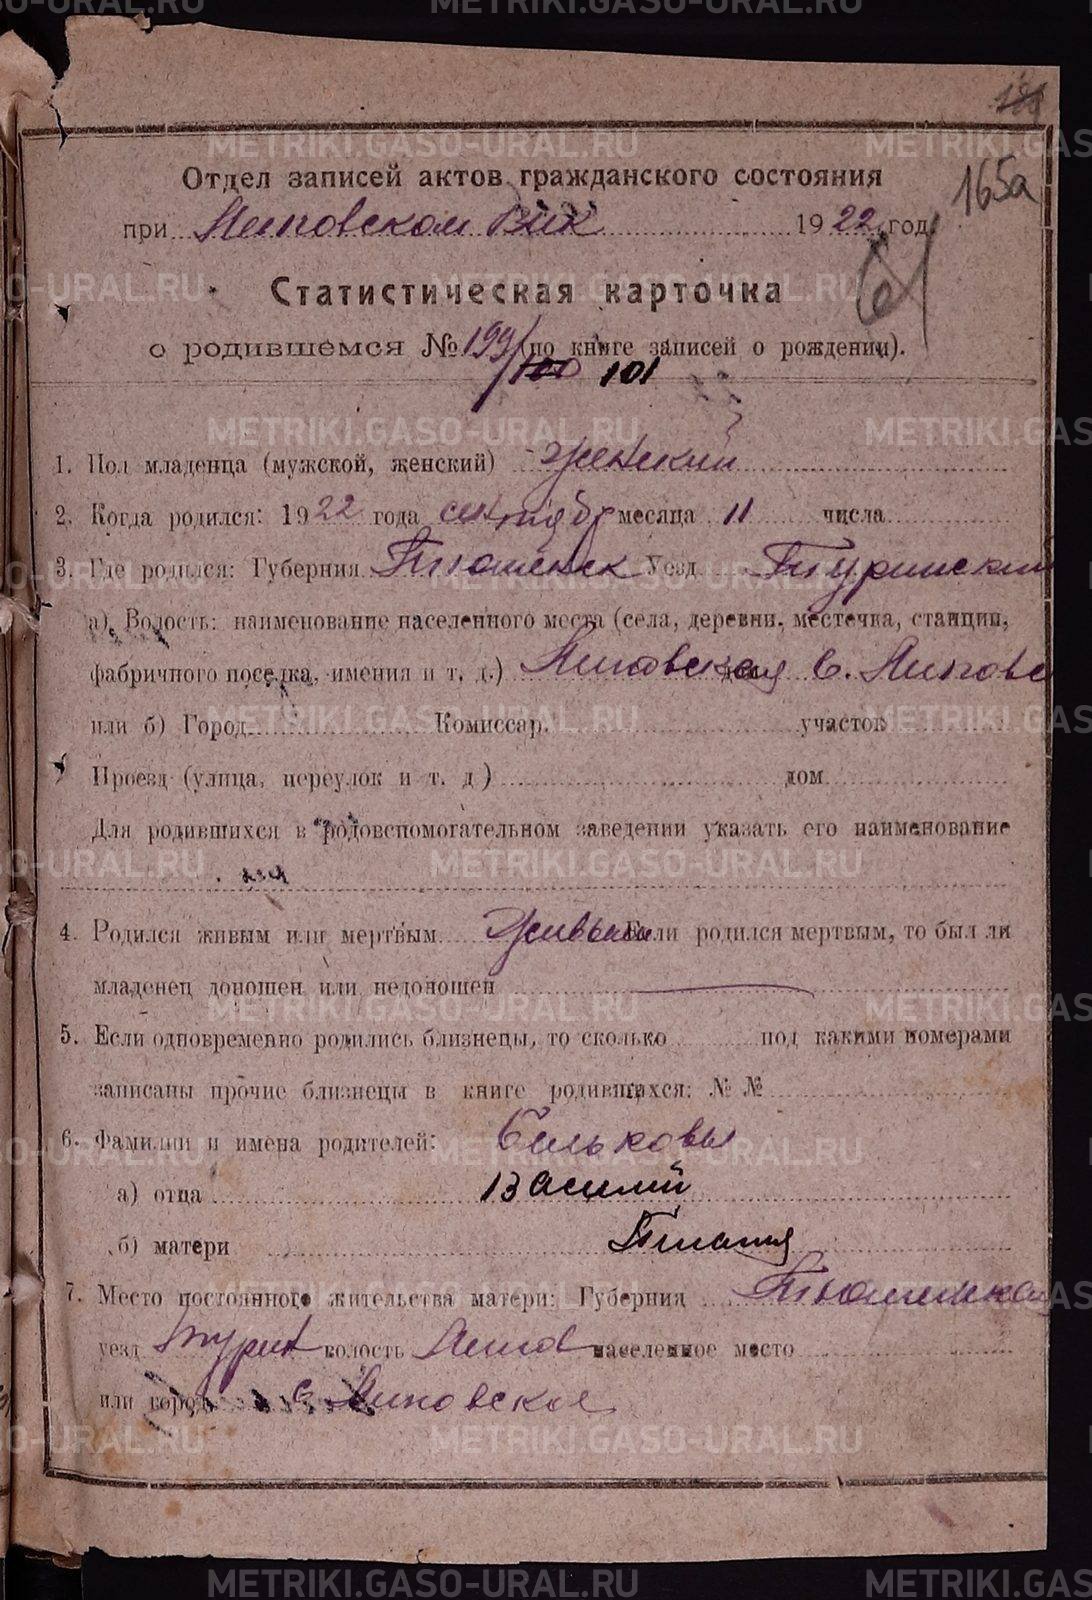 165а
Отдел записей актов гражданского состояния
при Липовском Вик 1922 год
Статистическая карточка
о родившемся № 199 (по книге записей о рождении).
100 101
1. Пол младенца (мужской, женский) женский
2. Когда родился: 1922 года сентябр месяца 11 числа
3. Где родился: Губерния Тюменск Уезд Туринский
а) Волость: наименование населенного места (села, деревни, местечка, станции,
фабричного поселка, имения и т. д.) Липовская с. Липовс
или б) Город Комиссар. участок
Проезд (улица, переулок и т. д) дом
Для родившихся в родовспомогательном заведении указать его наименование
4. Родился живым или мертвым Живым Если родился мертвым, то был ли
младенец доношен или недоношен
5. Если одновременно родились близнецы, то сколько под какими номерами
записаны прочие близнецы в книге родившихся: № №
6. Фамилии и имена родителей: Бильковы
а) отца Василий
б) матери
7. Место постоянного жительства матери: Губерния Тюменская
уезд Турин волость Липов населенное место
или город с Липовское
METRIKI.GASO-URAL.RU